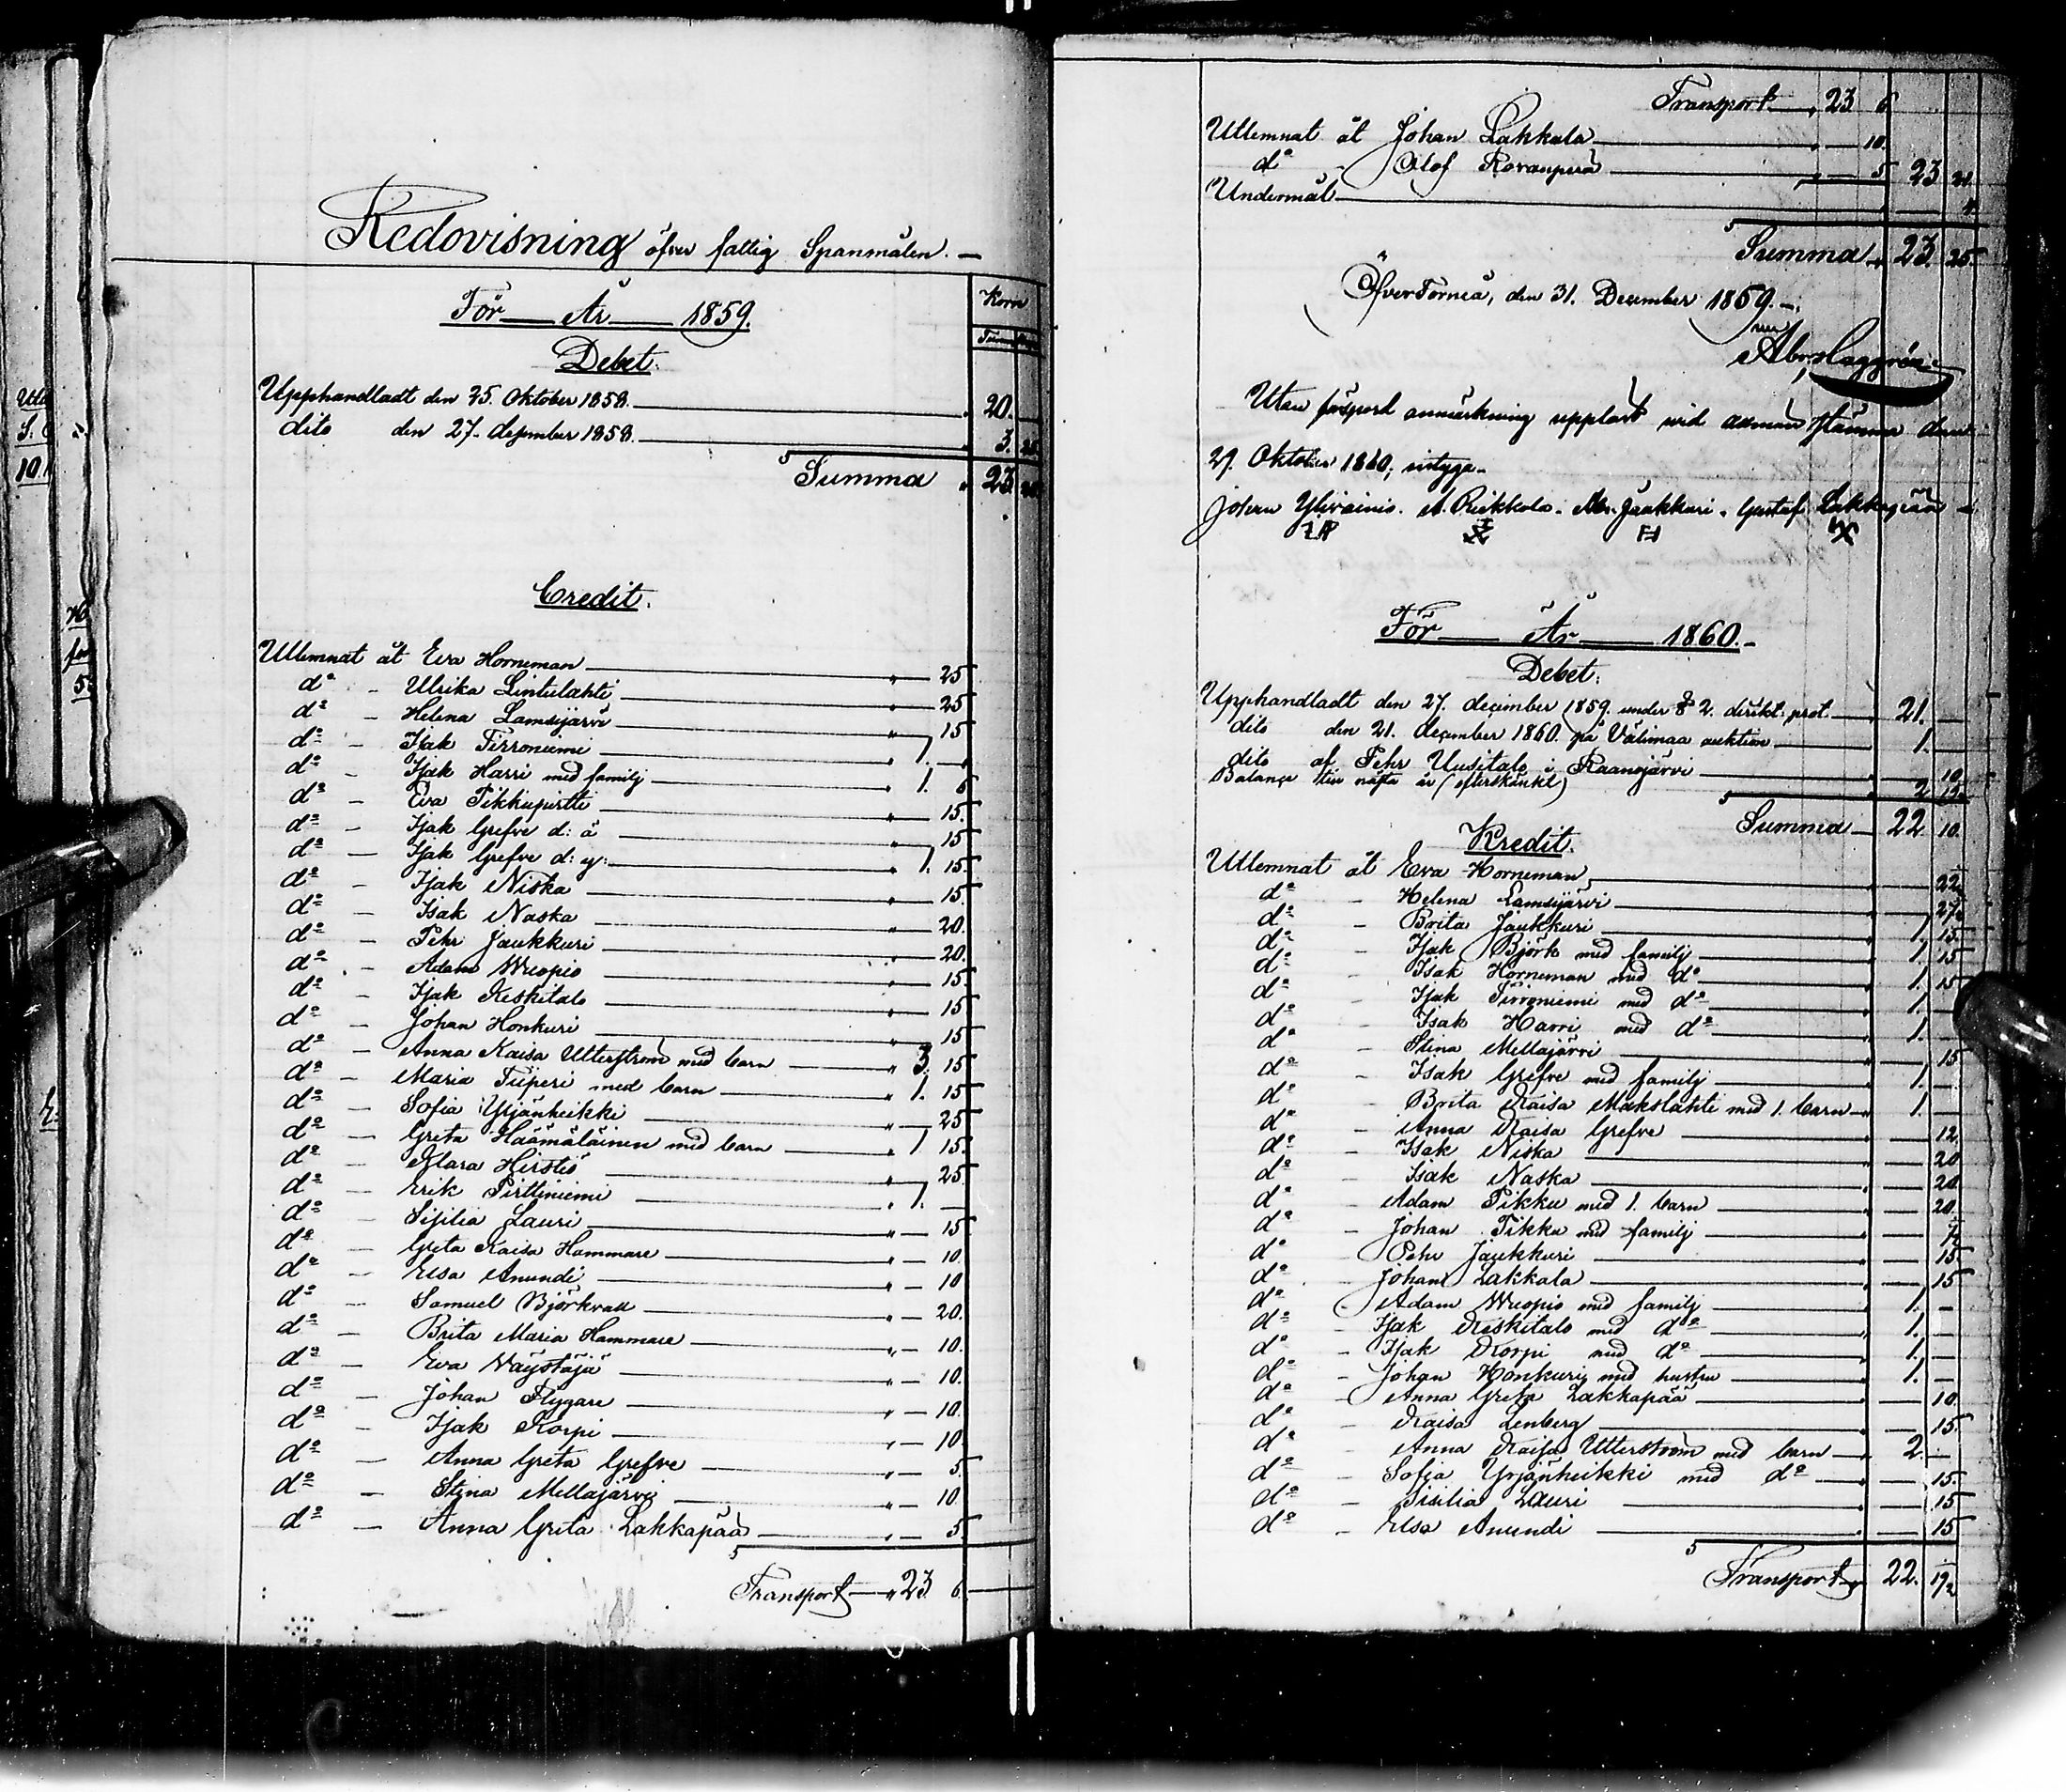 Redovisning öfver fattig Spanmålen.
För År 1859.
Korn
Debet.
Upphandladt den 25. Oktober 1858. 20.
dito den 27. december 1858. 3. 25
Summa 23
Credit.
Utlemnat åt Eva Horneman 25
do - Ulrika Lintulahti 25
do - Helena Lamsijärvi 15
do - Isak Tirroniemi 1. -
do - Isak Harri med familj 1. 6
do - Eva Pikkupirtti 15.
do - Isak Grefve d: ä 15
do - Isak Grefve d: y: 1. 15
do - Isak Niska 15.
do - Isak Naska 20.
do - Pehr Jaukkuri 20.
do - Adam Wuopio 15.
do - Isak Keskitalo 15
do - Johan Honkuri 15
do - Anna Kaisa Utterström med barn 3. 15
do - Maria Tiiperi med barn 1. 15
do - Sofia Yrjänheikki 25
do - Greta Häämäläinen med barn 1 15.
do - Klara Hirstiö 25
do - Erik Pirttiniemi 1. -
do - Sisilia Lauri 15
do - Greta Kaisa Hammare 10.
do - Elsa Anundi 10
do - Samuel Björkvall 20.
do - Brita Maria Hammare 10.
do - Eva Wäystäjä 10.
do - Johan Flygare 10.
do - Isak Korpi 10.
do - Anna Greta Grefve 5.
do - Stina Mellajärvi 10
do - Anna Greta Lakkapää 5.
Transport 23. 6.
Transport 23 6
Utlemnat åt Johan Lakkala 10.
do - Olof Rovanperä 5 23 21
Undermål 4
Summa 23. 25.
ÖfverTorneå, den 31. December 1859.
Utan försport anmärkning uppläst vid allmän stämma den
29. Oktober 1860, intyga
Johan Ylivainio. A. Riekkola. Abr. Jaukkuri. Gustaf Lakkapää
För År 1860.
Debet.
Upphandladt den 27. december 1859. under § 2. direkt: prot. 21. -
dito den 21. december 1860. på Välimaa auktion 1. -
dito af Pehr Uusitalo i Raanojärvi 10
Balance till nästa år (efterskänkt) 2 19
Summa 22 10.
Kredit.
Utlemnat åt Eva Horneman 22
do - Helena Lamsijärvi 27
do - Brita Jaukkuri 1 15.
do - Isak Björk med familj 1 15
do - Isak Horneman med do 1. 15
do - Isak Tirroniemi med do 1. -
do - Isak Harri med do 1. -
do - Stina Mellajärvi 15
do - Isak Grefve med familj 1. -
do - Brita Kaisa Makslahti med 1. barn 1. -
do - Anna Kaisa Grefve 12
do - Isak Niska 20
do - Isak Naska 20.
do - Adam Pikku med 1. barn 20.
do - Johan Pikku med familj
do - Pehr Jaukkuri 15.
do - Johan Lakkala 15
do - Adam Wuopio med familj 1. -
do - Isak Keskitalo med do 1. -
do - Isak Korpi med do 1. -
do - Johan Honkuri med hustru 1. -
do - Anna Greta Lakkapää 10.
do - Kaisa Lenberg 15.
do - Anna Kaisa Utterström med barn 2. -
do - Sofia Yrjänheikki med do 15.
do - Sisilia Lauri 15
do - Elsa Anundi 15
Transport 22.